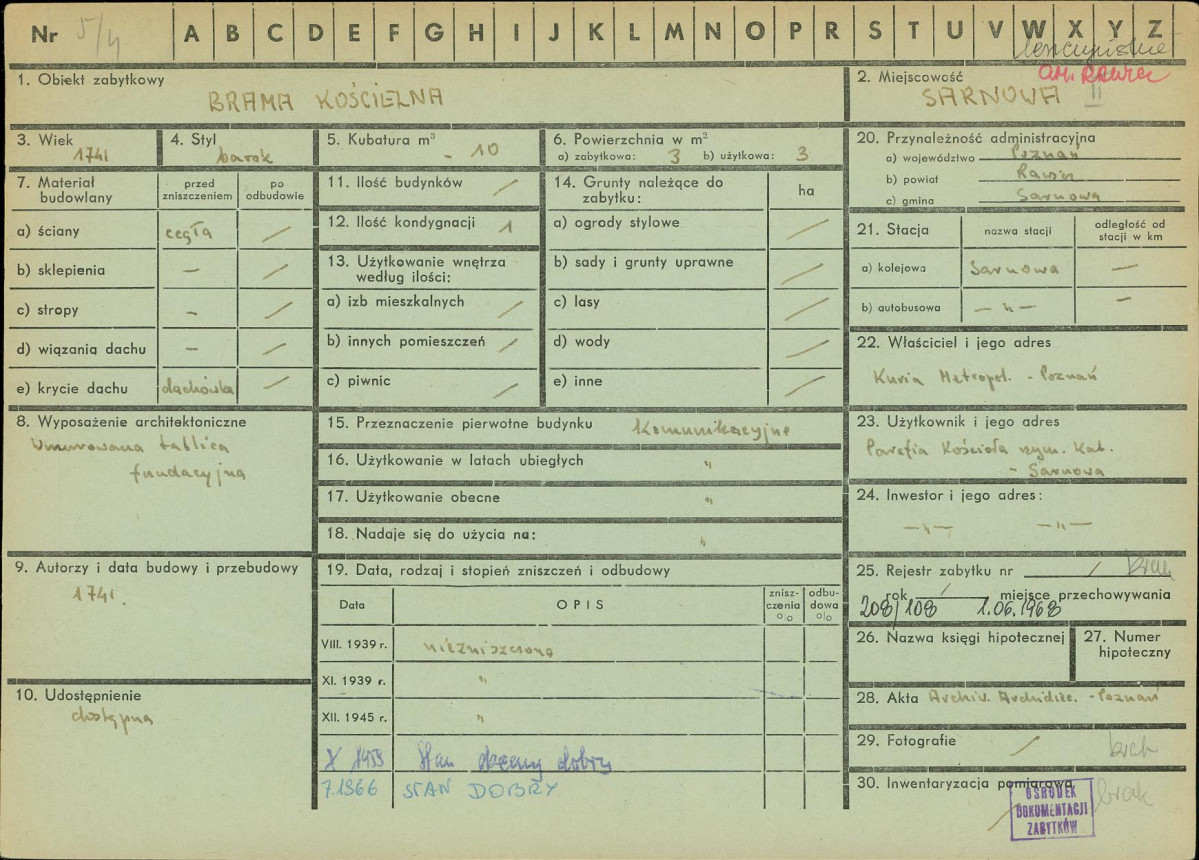 Nr 5/4 A B C D E F G H I J K L M N O P R S T U V W X Y Z
1. Obiekt zabytkowy
BRAMA KOŚCIELNA
2. Miejscowość
gm. RAWICZ
SARNOWA II
3. Wiek
1741
4. Styl
barok
5. Kubatura m³
- 10
6. Powierzchnia w m²
a) zabytkowa: 3 b) użytkowa: 3
7. Materiał budowlany
przed zniszczeniem
po odbudowie
a) ściany cegła /
b) sklepienia — /
c) stropy – /
d) wiązania dachu – /
e) krycie dachu dachówka /
8. Wyposażenie architektoniczne
Wmurowana tablica
fundacyjna
9. Autorzy i data budowy i przebudowy
1741.
10. Udostępnienie
dostępna
11. Ilość budynków /
12. Ilość kondygnacji 1
13. Użytkowanie wnętrza
według ilości:
a) izb mieszkalnych /
b) innych pomieszczeń /
c) piwnic /
14. Grunty należące do
zabytku:
ha
a) ogrody stylowe /
b) sady i grunty uprawne /
c) lasy /
d) wody /
e) inne /
15. Przeznaczenie pierwotne budynku Komunikacyjne
16. Użytkowanie w latach ubiegłych "
17. Użytkowanie obecne "
18. Nadaje się do użycia na: "
19. Data, rodzaj i stopień zniszczeń i odbudowy
Data OPIS znisz-
czenia
o/o odbu-
dowa
o/o
VIII. 1939 r. niezniszczona
XI. 1939 r. "
XII. 1945 r. "
X 1959 Stan obecny dobry
7.1966 STAN DOBRY
20. Przynależność administracyjna
a) województwo Poznań
b) powiat Rawicz
c) gmina Sarnowa
21. Stacja
nazwa stacji
odległość od
stacji w km
a) kolejowa Sarnowa —
b) autobusowa — " — –
22. Właściciel i jego adres
Kuria Metropol. - Poznań
23. Użytkownik i jego adres
Parafia Kościoła rzym. Kat.
- Sarnowa
24. Inwestor i jego adres:
— " — — " —
25. Rejestr zabytku nr / brak
rok / miejsce przechowywania
208/108 1.06.1968
26. Nazwa księgi hipotecznej
27. Numer
hipoteczny
28. Akta Archiw. Archidiec. - Poznań
29. Fotografie / brak
30. Inwentaryzacja pomiarowa
/ brak
OŚRODEK
DOKUMENTACJI
ZABYTKÓW